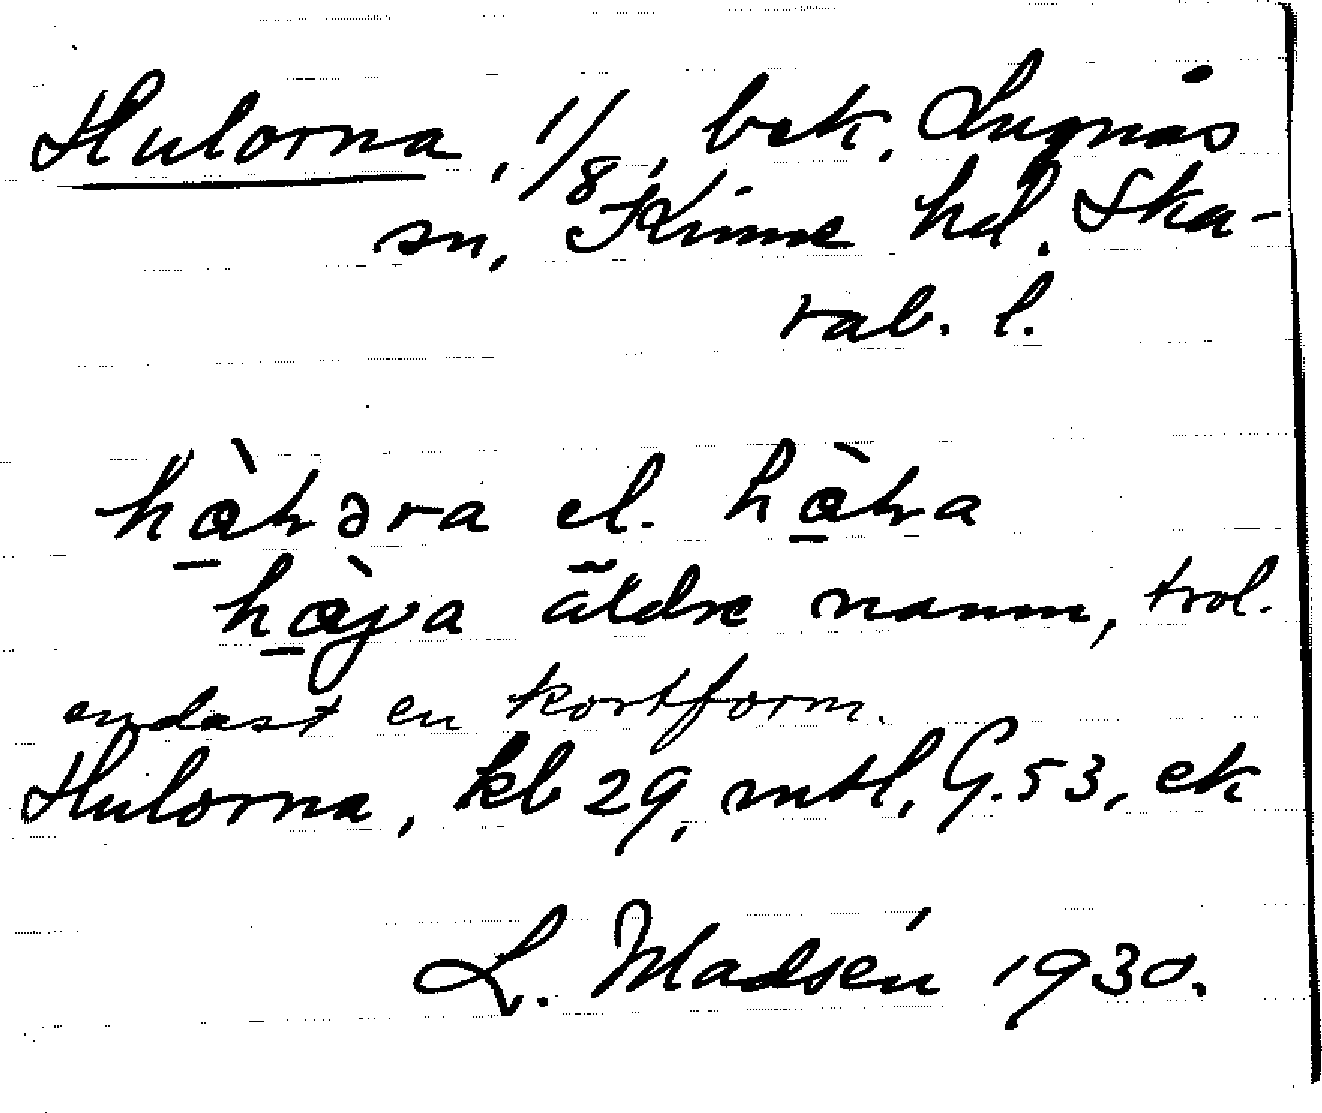 Hulorna, 1/8, bek. Lugnås
sn, Kinne hd. Ska-
rab. l.
el.
äldre namn, trol.
endast en kortform.
Hulorna, kb 29, mtl, G. 53, ek
L. Madsén 1930.